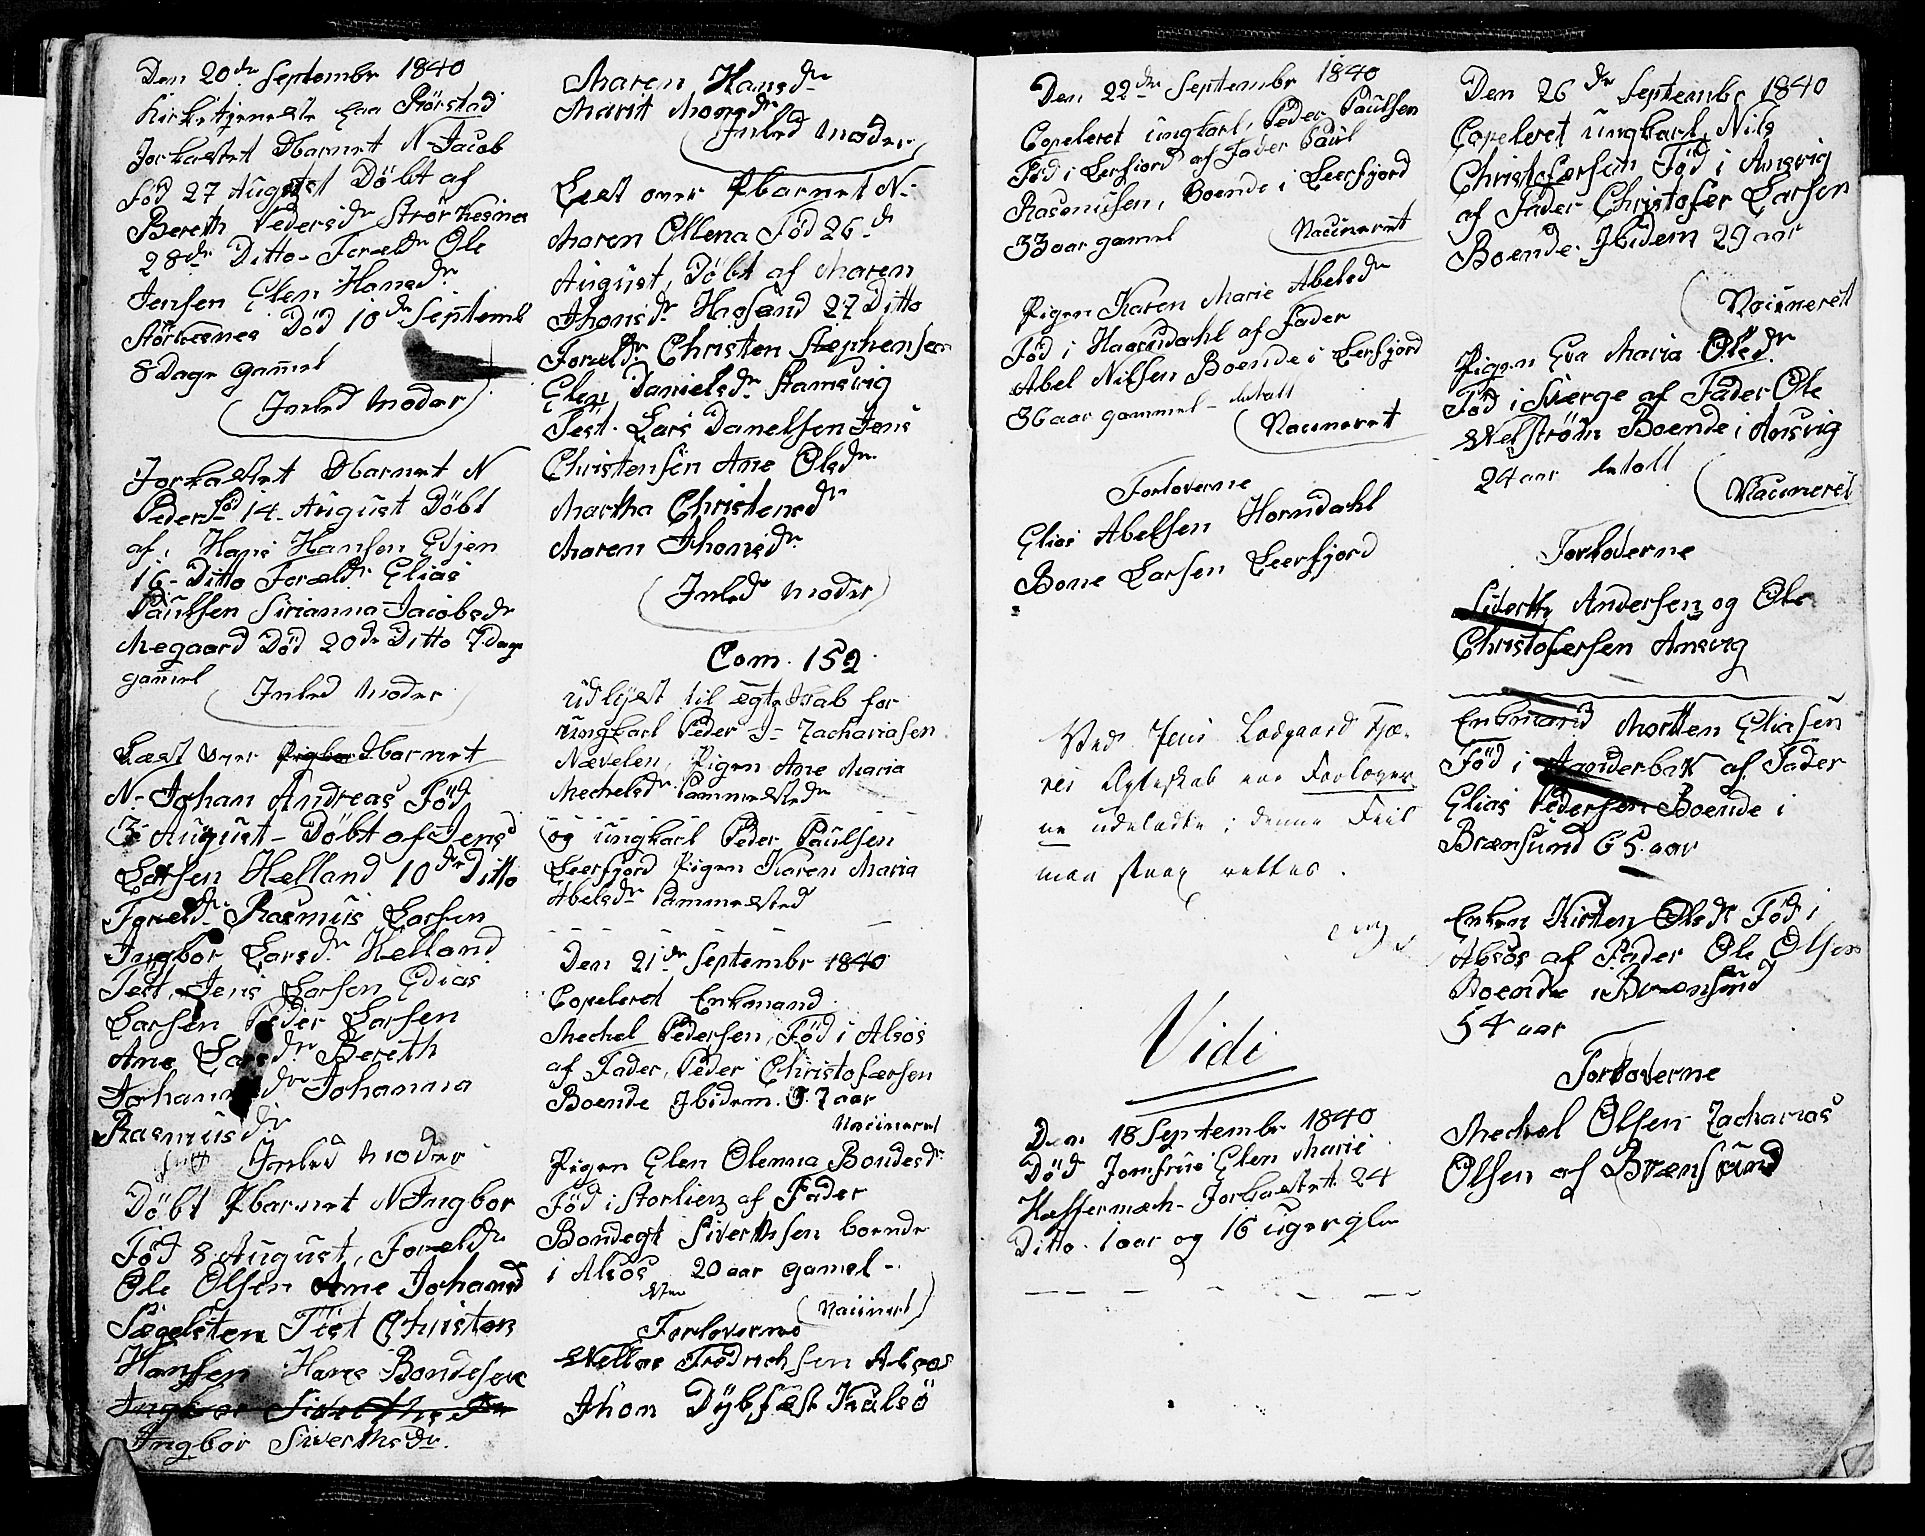 Den 20de Septembr 1840
Kirketjeneste paa Rörstad
Jorkastet Dbarnet N. Jacob
Föd 27 August Döbt af
Bereth Pedersdr Störkesnes
28de Ditto Forældr Ole
Jensen Elen Hansdr
Störkesnes Död 10de Septemb
8 Dage gamel
Inled Moder
Jorkastet Dbarnet N
Peder Föd 14 August Döbt
af Hans Hansen Edjen
16 Ditto Forældr Elias
Paulsen Sirianna Jacobsdr
Megaard Död 20de Ditto 7 Dage
gamel
Inled Moder
Læst over Dbarnet
N. Johan Andreas Föd
3 August Döbt af Jens
Larsen Hælland 10de Ditto
Forældr Rasmus Larsen
Ingbor Larsdr Helland
Test. Jens Larsen Edias
Larsen Peder Larsen
Ane Larsdr Bereth
Johannesdr Johanna
Rasmusdr
Inled Moder
Döbt Pbarnet N Ingbor
Föd 8 August, Forældr
Ole Olsen Ane Johansd
Sægelsten Test Christen
Hansen Hans Bondesen
Ingbor Siverthsdr
Ingbor Siverthsdr.
Maren Hansdr
Marit Monsdr
Inled Moder
Læst over Pbarnet N.
Maren Ollena Föd 26d
August, Döbt af Maren
Jhonsdr Hagsand 27 Ditto
Forældr Christen Stephensen
Elen Danielsdr Stamsvig
Test. Lars Danelsen Jens
Christensen Ane Olsdr
Martha Christensdr
Maren Jhonsdr
Inledr Moder
Com. 152
udlyst til ægteskab for
ungkarl Peder J. Zachariasen
Nævelen, Pigen Ane Maria
Mechelsdr Sammestedr
og ungkarl Peder Paulsen
Leerfjord Pigen Karen Maria
Abelsdr Sammested
Den 21de Septembr 1840
Copeleret Enkmand
Mechel Pedersen, Föd i Alsös
af Fader, Peder Christofærsen
Boende Ibidem. 37 aar
Vacineret
Pigen Elen Olenna Bondesdr
Föd i Storlien af Fader
Bondegt Siverthsen boende
i Alsos 20 aar gamel
Vacinert
Forloverne
Wellas Fredrichsen Alsos
Jhon Dybfæst Kulsö
Den 22de Septembr 1840
Copeleret ungkarl, Peder Paulsen
Föd i Lerfjord af Fader Paul
Rasmusen, Boende i Leerfjord
33 aar gamel
Vacineret
Pigen Karen Marie Abelsdr
Föd i Haarndahl af Fader
Abel Nilsen Boende i Leerfjord
36 aar gammel - betalt
Vacineret
Forloverne
Elias Abelsen Horndahl
Bone Larsen Leerfjord
Ved Jens Ladgaard
Ægteskab ere Forlover
ne udeladte; denne Feil
maa strax rettes.
Vidi
Den 18 Septembr 1840
Död Jomfrue Elen Marie
Hæffermæh- Jorkastet 24
Ditto 1 aar og 16 uger glm
Den 26de Septembr 1840
Copeleret ungkarl Nils
Christofærsen Föd i Ansvig
af Fader Christofær Larsen
Boende Ibidem 29 aar
Vacineret
Pigen Eva Maria Olsdr
Föd i Sværge af Fader Ole
Welström Boende i Ansvig
24 aar betalt
Vacineret
Forloverne
Siverth Andersen og Ole
Christofersen Ansvig
Enkmand Morten Eliasen
Föd i Sanderbak af Fader
Elias Pedersen Boende i
Brænsund 65 aar
Enken Kirsten Olsdr Föd i
Alsös af Fader Ole Olsen
Boende i Brænsund
54 aar
Forloverne
Mechel Olsen Zacharias
Olsen af Brænsund